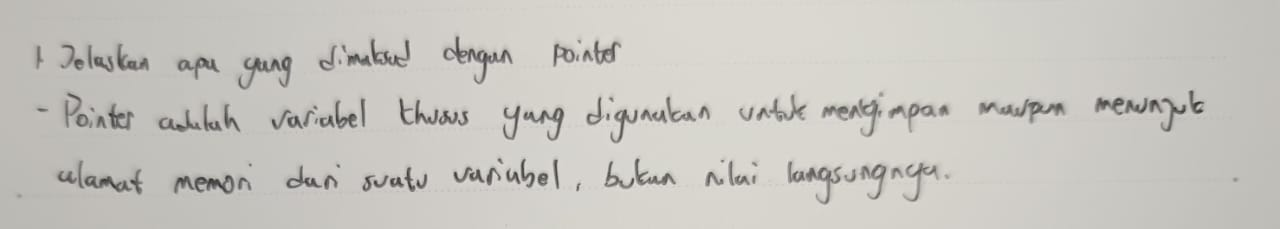 1 Jelaskan apa yang dimaksud dengan pointer
- Pointer adalah variabel khusus yang digunakan untuk mengimpan maupun menunjuk
alamat memori dari suatu variabel, bukan nilai langsungnya.